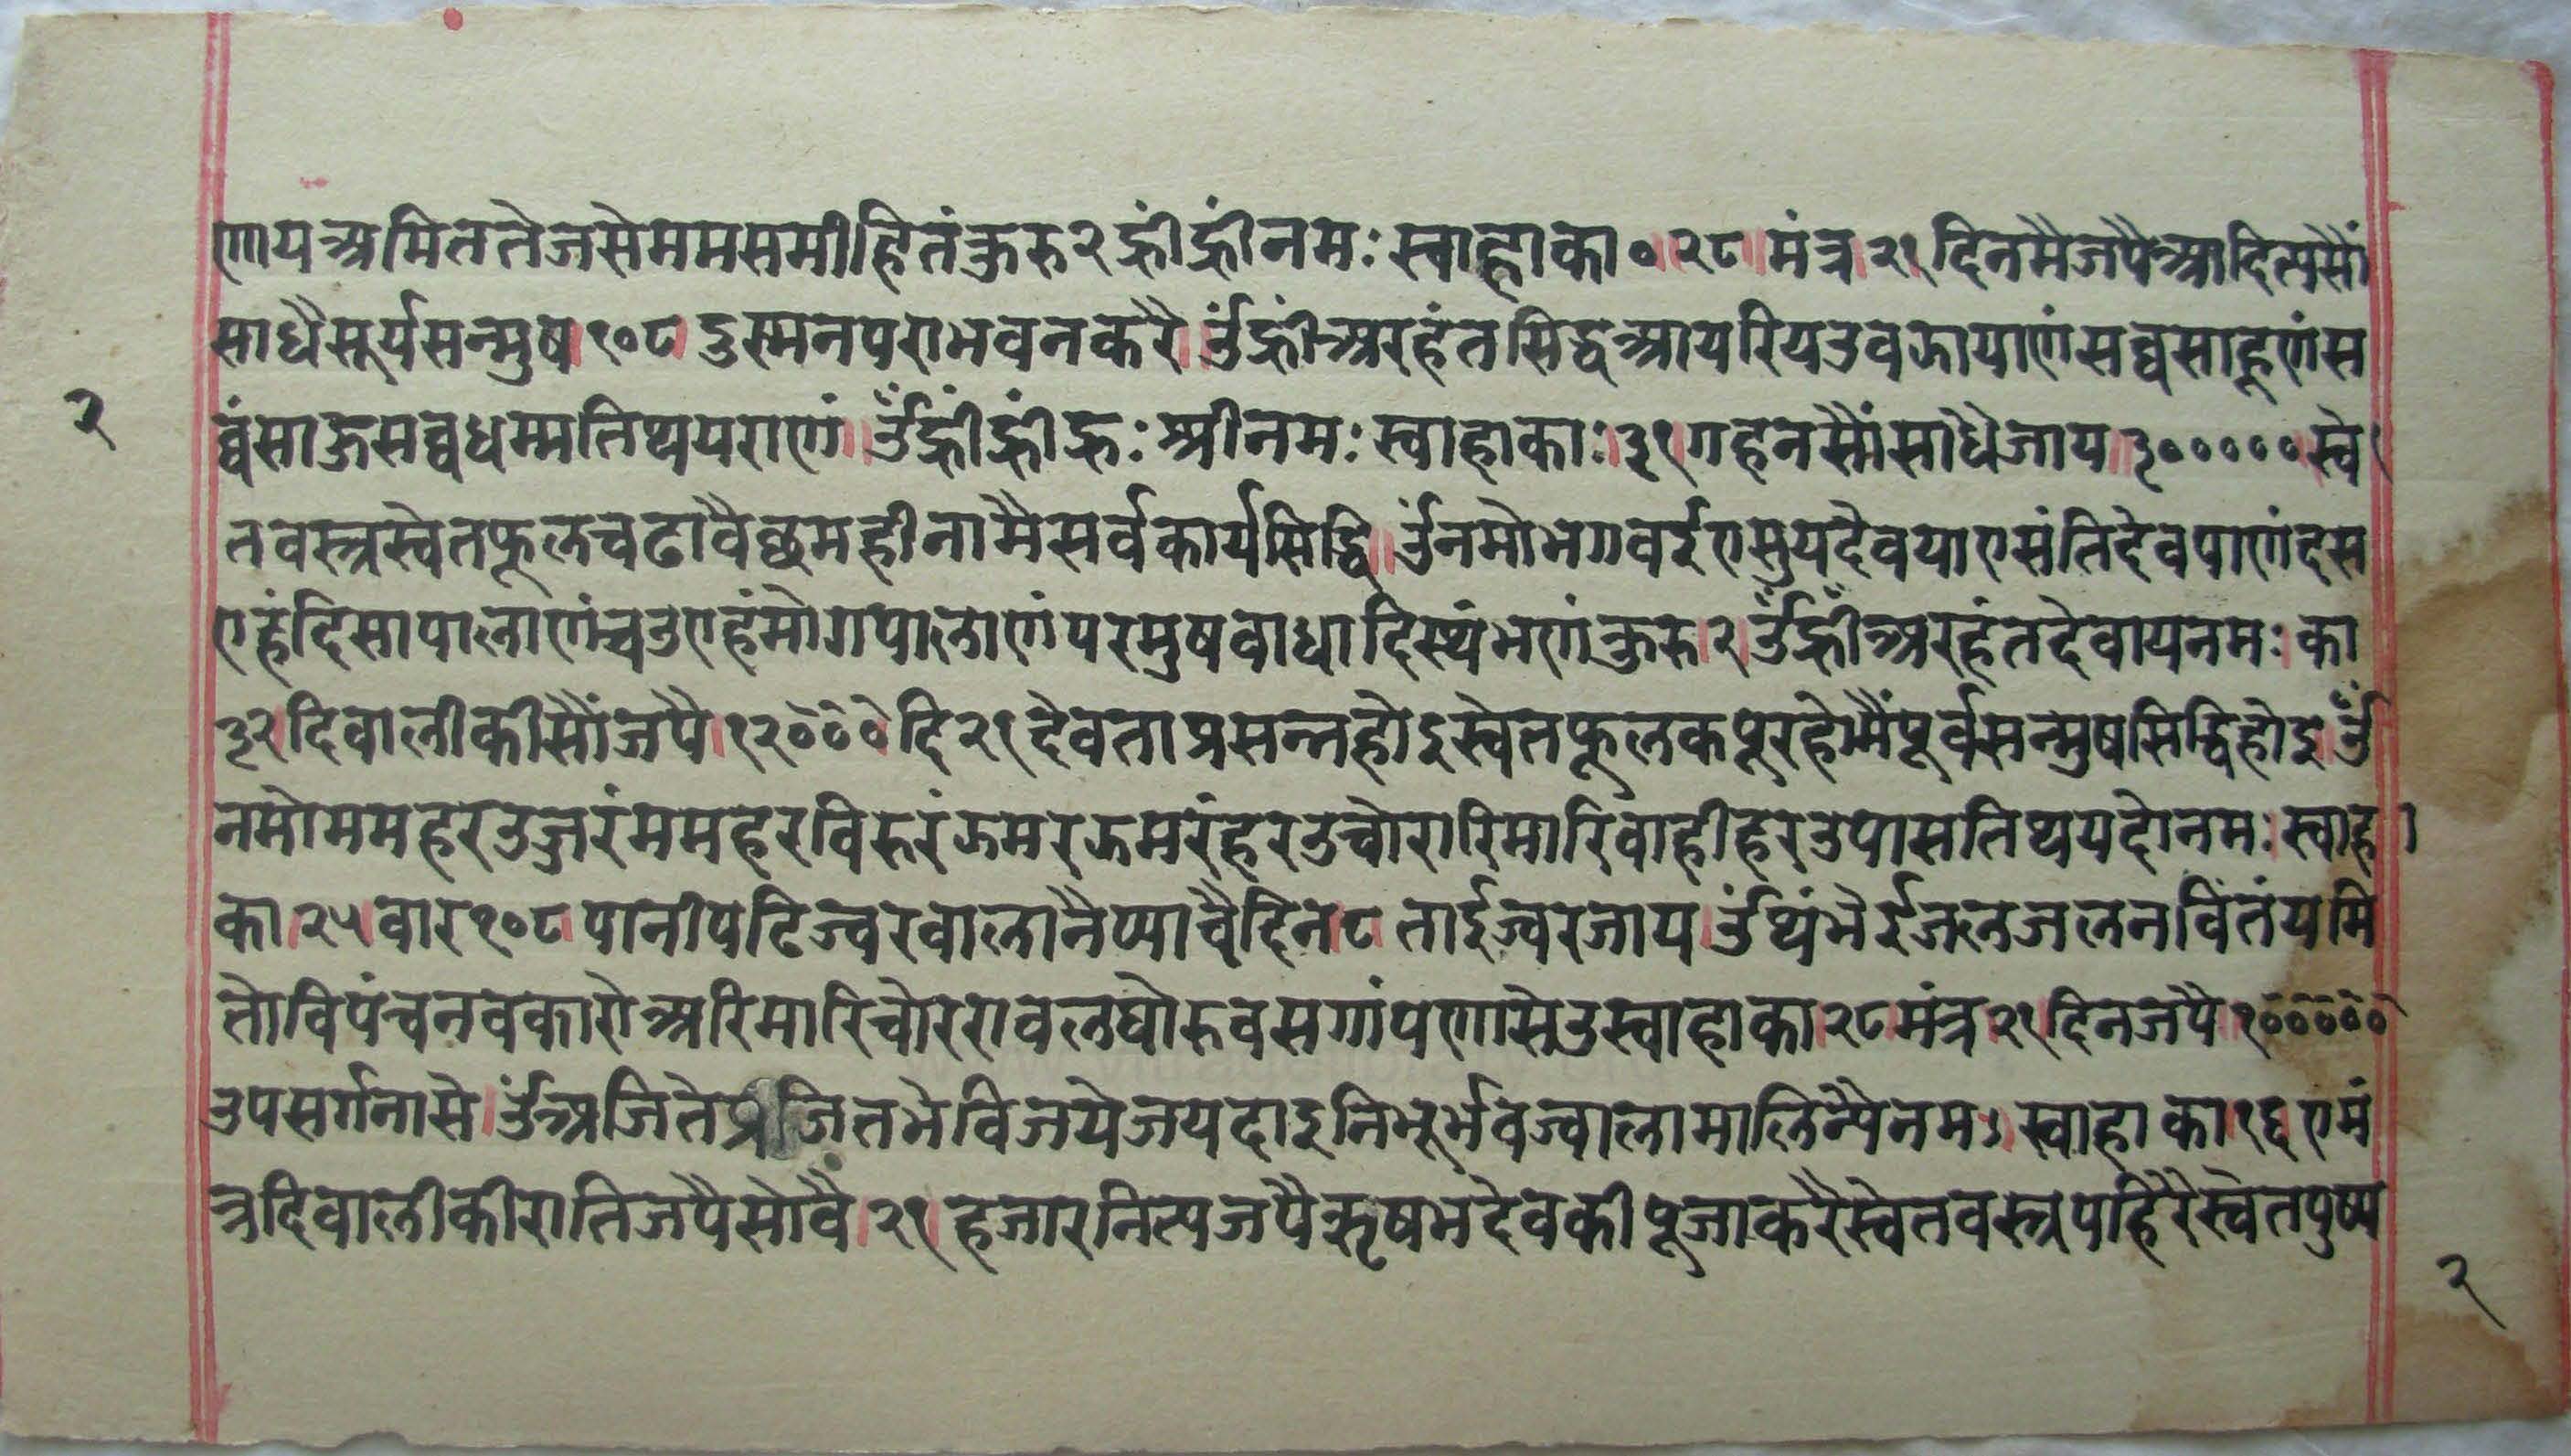 णाय अमिततेजसे मम समीहितं कुरु २ ह्रीं ह्रीं नमः स्वाहा का० । २८ । मंत्र । २१ दिनमै जपै आदित्यसौं
साधै सूर्य सन्मुष । १०८ । दुस्मन पराभव न करै । ॐ ह्रीं अरहंत सिद्ध आयरिय उवझायाणं सव्वसाहूणं स
व्वंसाऊ सव्वधम्मतिथ्थयराणं ॥ ॐ ह्रीं ह्रीं ह्रः श्री नमः स्वाहा काः । ३१ गहनसौं साधै जाय । ३००००० । स्वे
तवस्त्र स्वेतफूल चढावै छमहीनामै सर्वकार्यसिद्धि ॥ ॐ नमो भगवईए सुयदेवयाए संतिदेवयाणं दस
एहं दिसापालाणं चउएहं मोगपालाणं परमुषवाधादिस्थंभणं कुरु २ । ॐ ह्रीं अरहंतदेवाय नमः । का
३२ । दिवालीकीसौं जपै । १२००० दि २१ देवता प्रसन्न होइ स्वेतफूल कपूर होमैं पूर्वसन्मुष सिद्धि होइ । ॐ
नमो मम हरउ जरं मम हर विरुरं झमर झमरं हरउ चोरारि मारि वाही हरउ पासतिथ्थयदो नमः । स्वाहा
का । २५ । वार १०८ । पानी पटि ज्वरवालानै प्यावै दिन । ८ ताई ज्वर जाय । ॐ थंभेई जलजलन विंतंयमि
तो वि पंचनवकारो अरिमारिचोरराव लघोरुवसग्गं पणासेउ स्वाहा का । २८ मंत्र । २१ । दिन जपै । १०००००
उपसर्ग नासे । ॐ अजिते जितभे विजये जयदाइनि भूर्भव ज्वालामालिन्यै नमः । स्वाहा का । १६ ए मं
त्र दिवालीकी राति जपै सोवै । २१ । हजार नित्य जपै ऋषभदेवकी पूजा करै स्वेतवस्त्र पहिरै स्वेतपुष्प
२
२